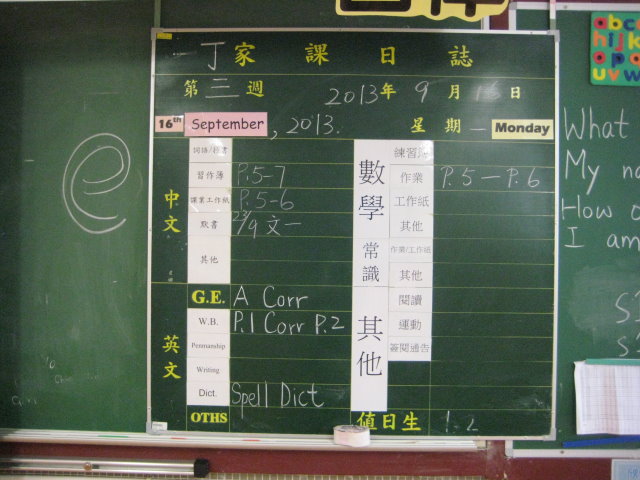 一丁家課日誌
第三週 2013年9月16日
16th September, 2013. 星期一 Monday
中文
習作簿 P.5-7
課業工作紙 P.5-6
默書 23/9 文一
其他
G.E. A Corr
英文
W.B. P.1 Corr P.2
Penmanship
Writing
Dict. Spell Dict
OTHS
數學
練習簿
作業 P.5-P.6
工作紙
其他
常識
作業/工作紙
其他
其他
閱讀
運動
簽閱通告
值日生 1-2
e
abc
hijk
opq
uvw
What
My na
How o
I am